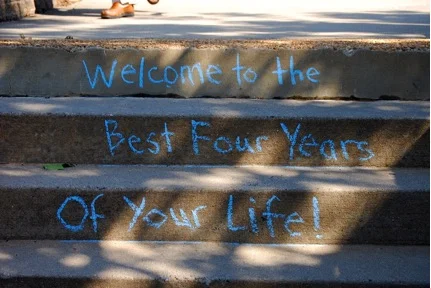 Welcome to the
Best Four Years
Of Your Life!